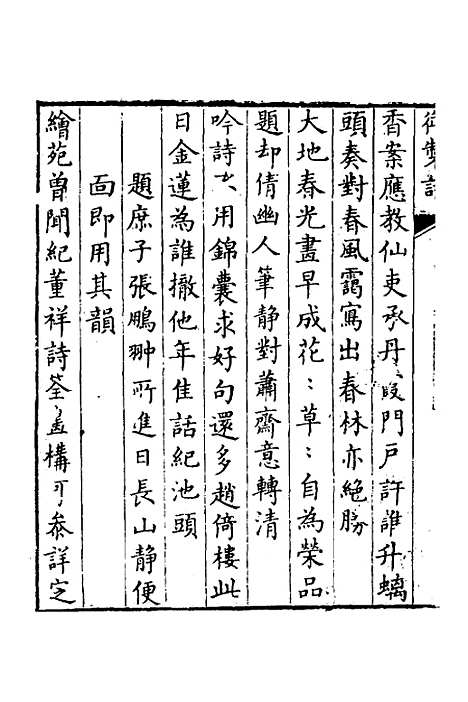 御製詩
香案應教仙吏承丹段門戸許誰升螭
頭奏對春風靄寫出春林亦絶勝
大地春光畫早成花〻草〻自為榮品
題却倩幽人筆静對蕭齋意轉清
吟詩大用錦囊求好句還多趙倚樓此
日金蓮為誰撤他年佳話紀池頭
題庶子張鵬翀所進日長山静便
面即用其韻
繪苑曽聞紀董祥詩荃盖構可叅詳定